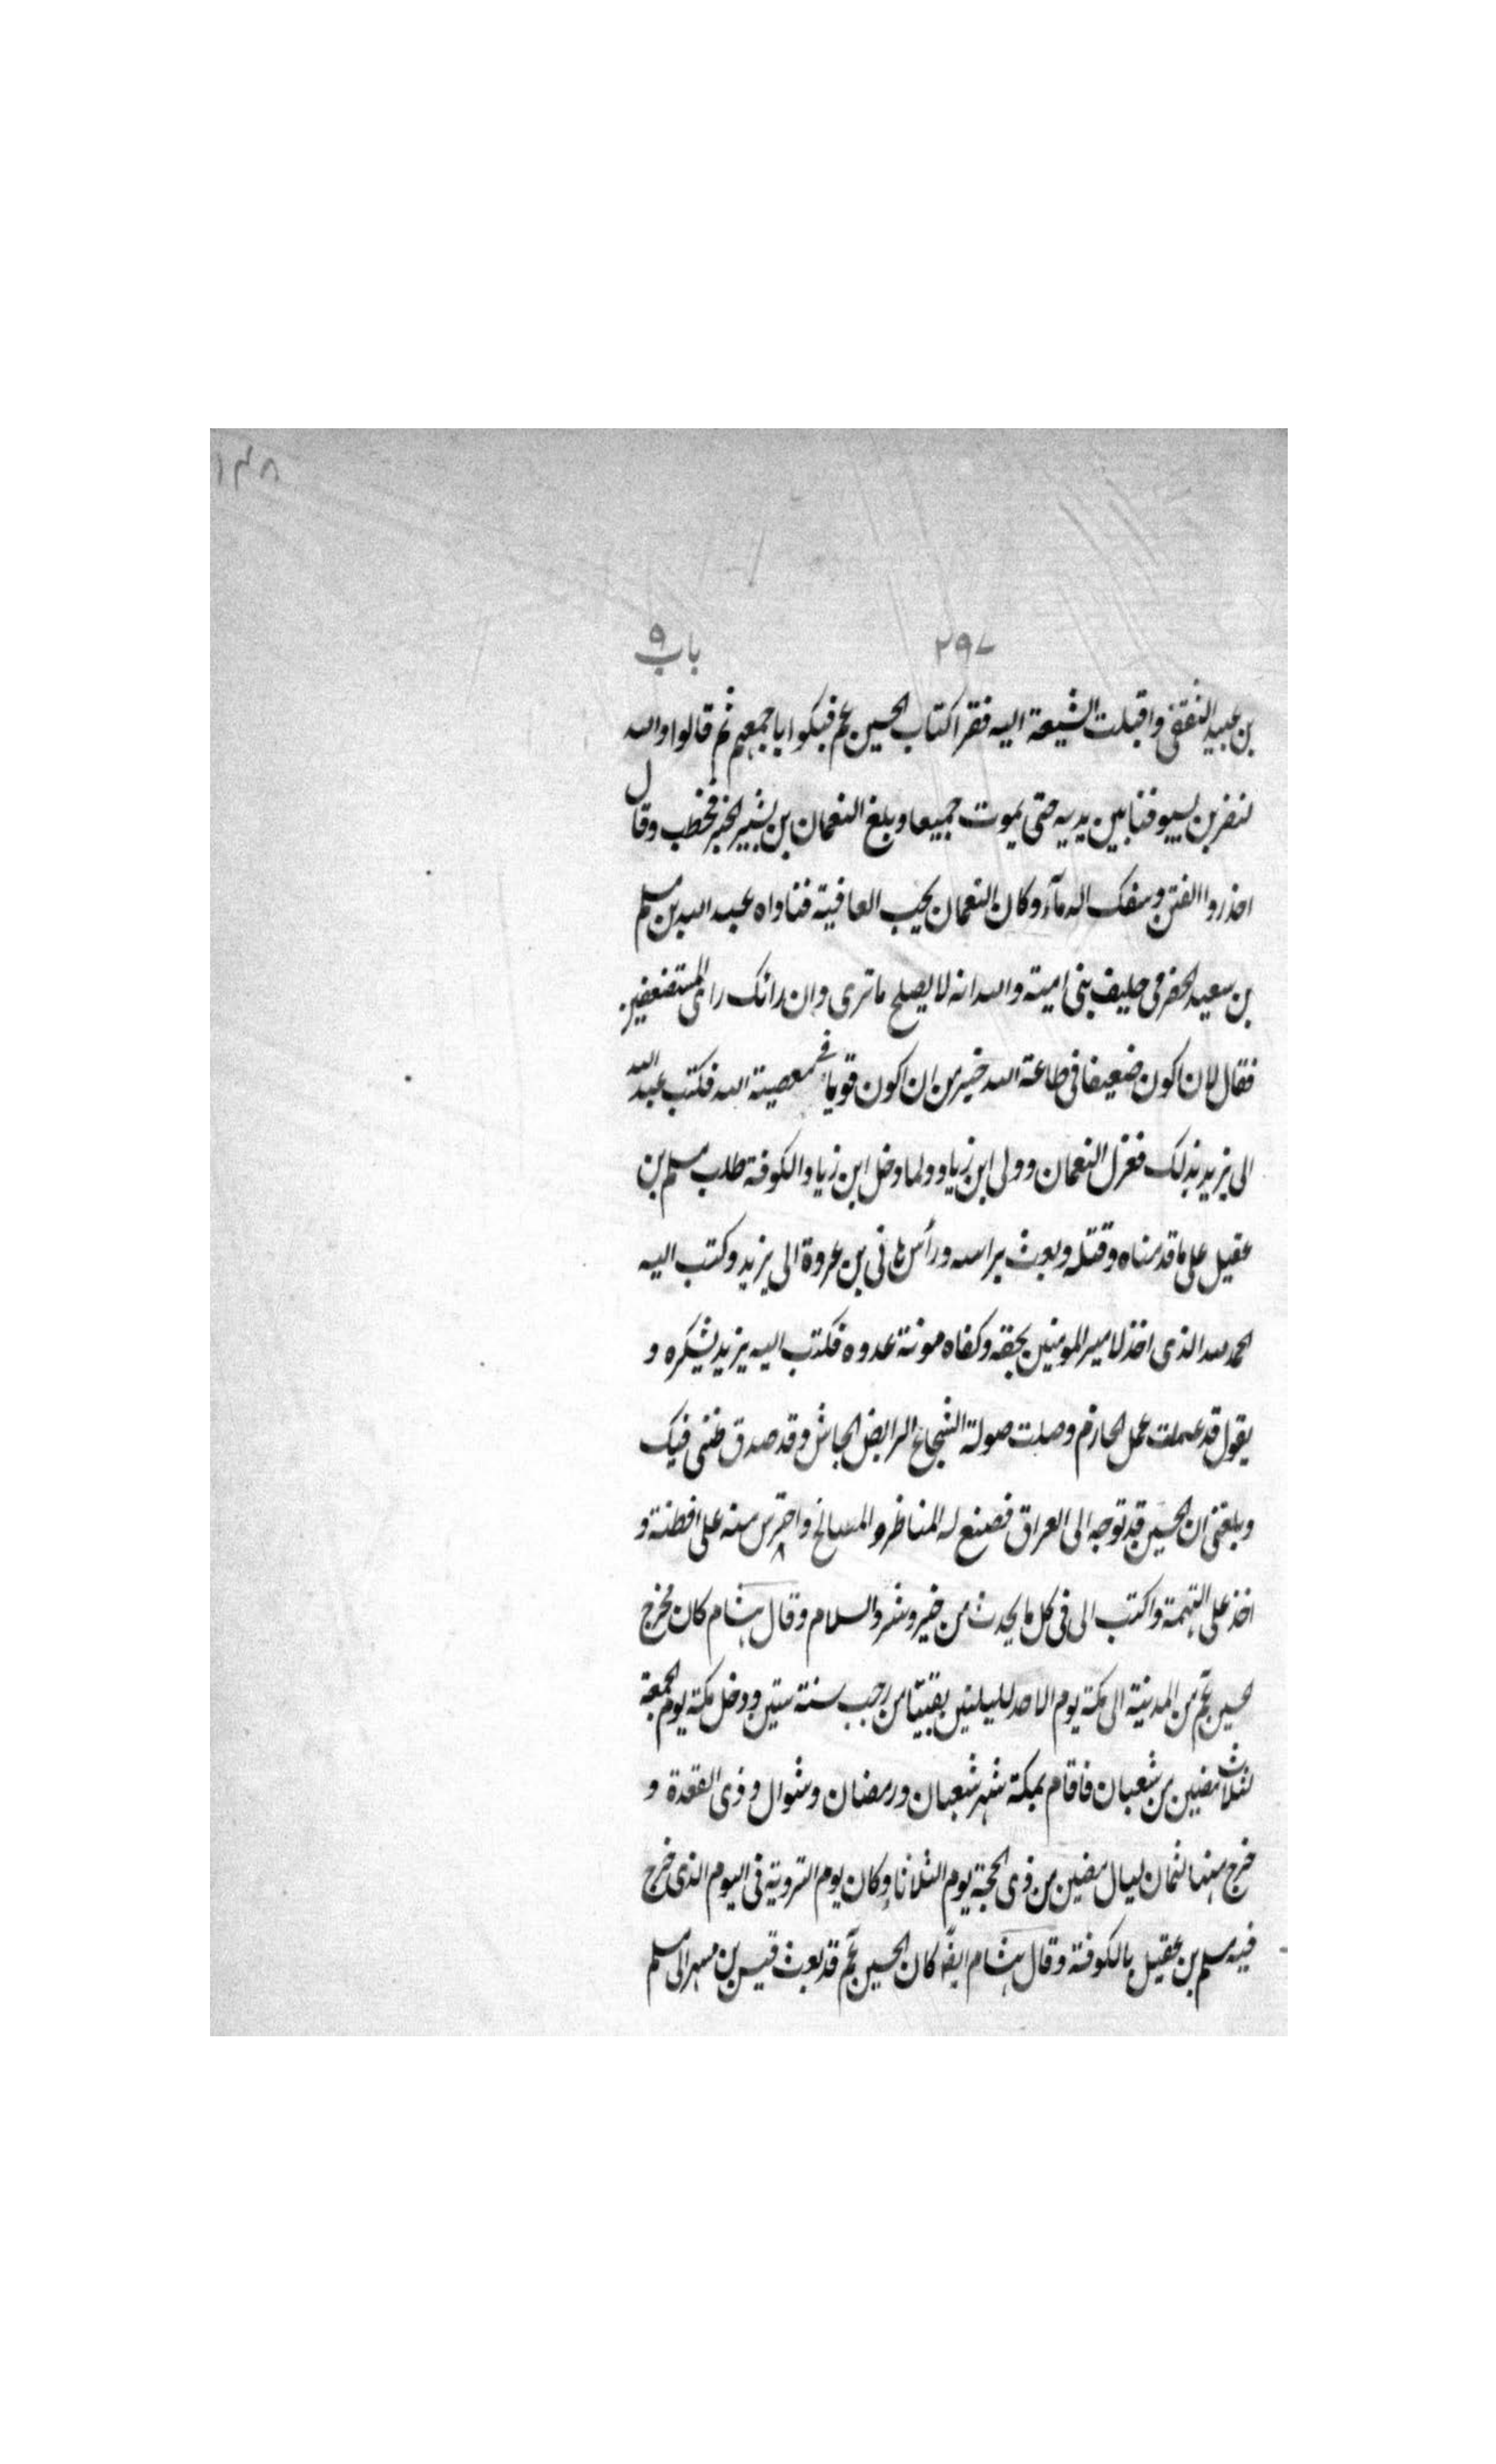 ١٤٨
٢٩٧ باب ٩
بن عبيد الثقفى واقبلت الشيعة اليه فقرا كتاب الحسين عم فبكوا باجمعهم ثم قالوا والله
لنضربن بسيوفنا بين يديه حتى يموت جميعا وبلغ النعمان بن بشير الخبر فخطب وقال
احذروا الفتن وسفك الدمآء وكان النعمان يحب العافية فناداه عبد الله بن مسلم
بن سعيد الحضرمى حليف بنى امية والله انه لا يصلح ما ترى وان رائك راى المستضعفين
فقال لان اكون ضعيفا فى طاعة الله خير من ان اكون قويا فى معصية الله فكتب عبد الله
الى يزيد بذلك فعزل النعمان وولى ابن زياد ولما دخل ابن زياد الكوفة طلب مسلم بن
عقيل على ما قدمناه وقتله وبعث براسه ورأس هانى بن عروة الى يزيد وكتب اليه
الحمد لله الذى اخذ لامير المومنين بحقه وكفاه مونة عدوه فكتب اليه يزيد يشكره و
يقول قد عملت عمل الحازم وصلت صولة الشجاع الرابض الجاش وقد صدق ظنى فيك
وبلغنى ان الحسين قد توجه الى العراق فصنع له المناظر و المسالح واحترس منه على افطنة و
اخذ على التهمة واكتب الى فى كل ما يحدث من خير وشر والسلام وقال هشام كان مخرج
حسين عم من المدينة الى مكة يوم الاحد لليلتين بقيتا من رجب سنة ستين ودخل مكة يوم الجمعة
لثلاث مضين من شعبان فاقام بمكة شهر شعبان ورمضان وشوال وذى القعدة و
خرج منها لثمان ليال مضين من ذى الحجة يوم الثلاثا وكان يوم التروية فى اليوم الذى خرج
فيه مسلم بن عقيل بالكوفة وقال هشام ايضا كان الحسين عم قد بعث قيس بن مسهر الى مسلم